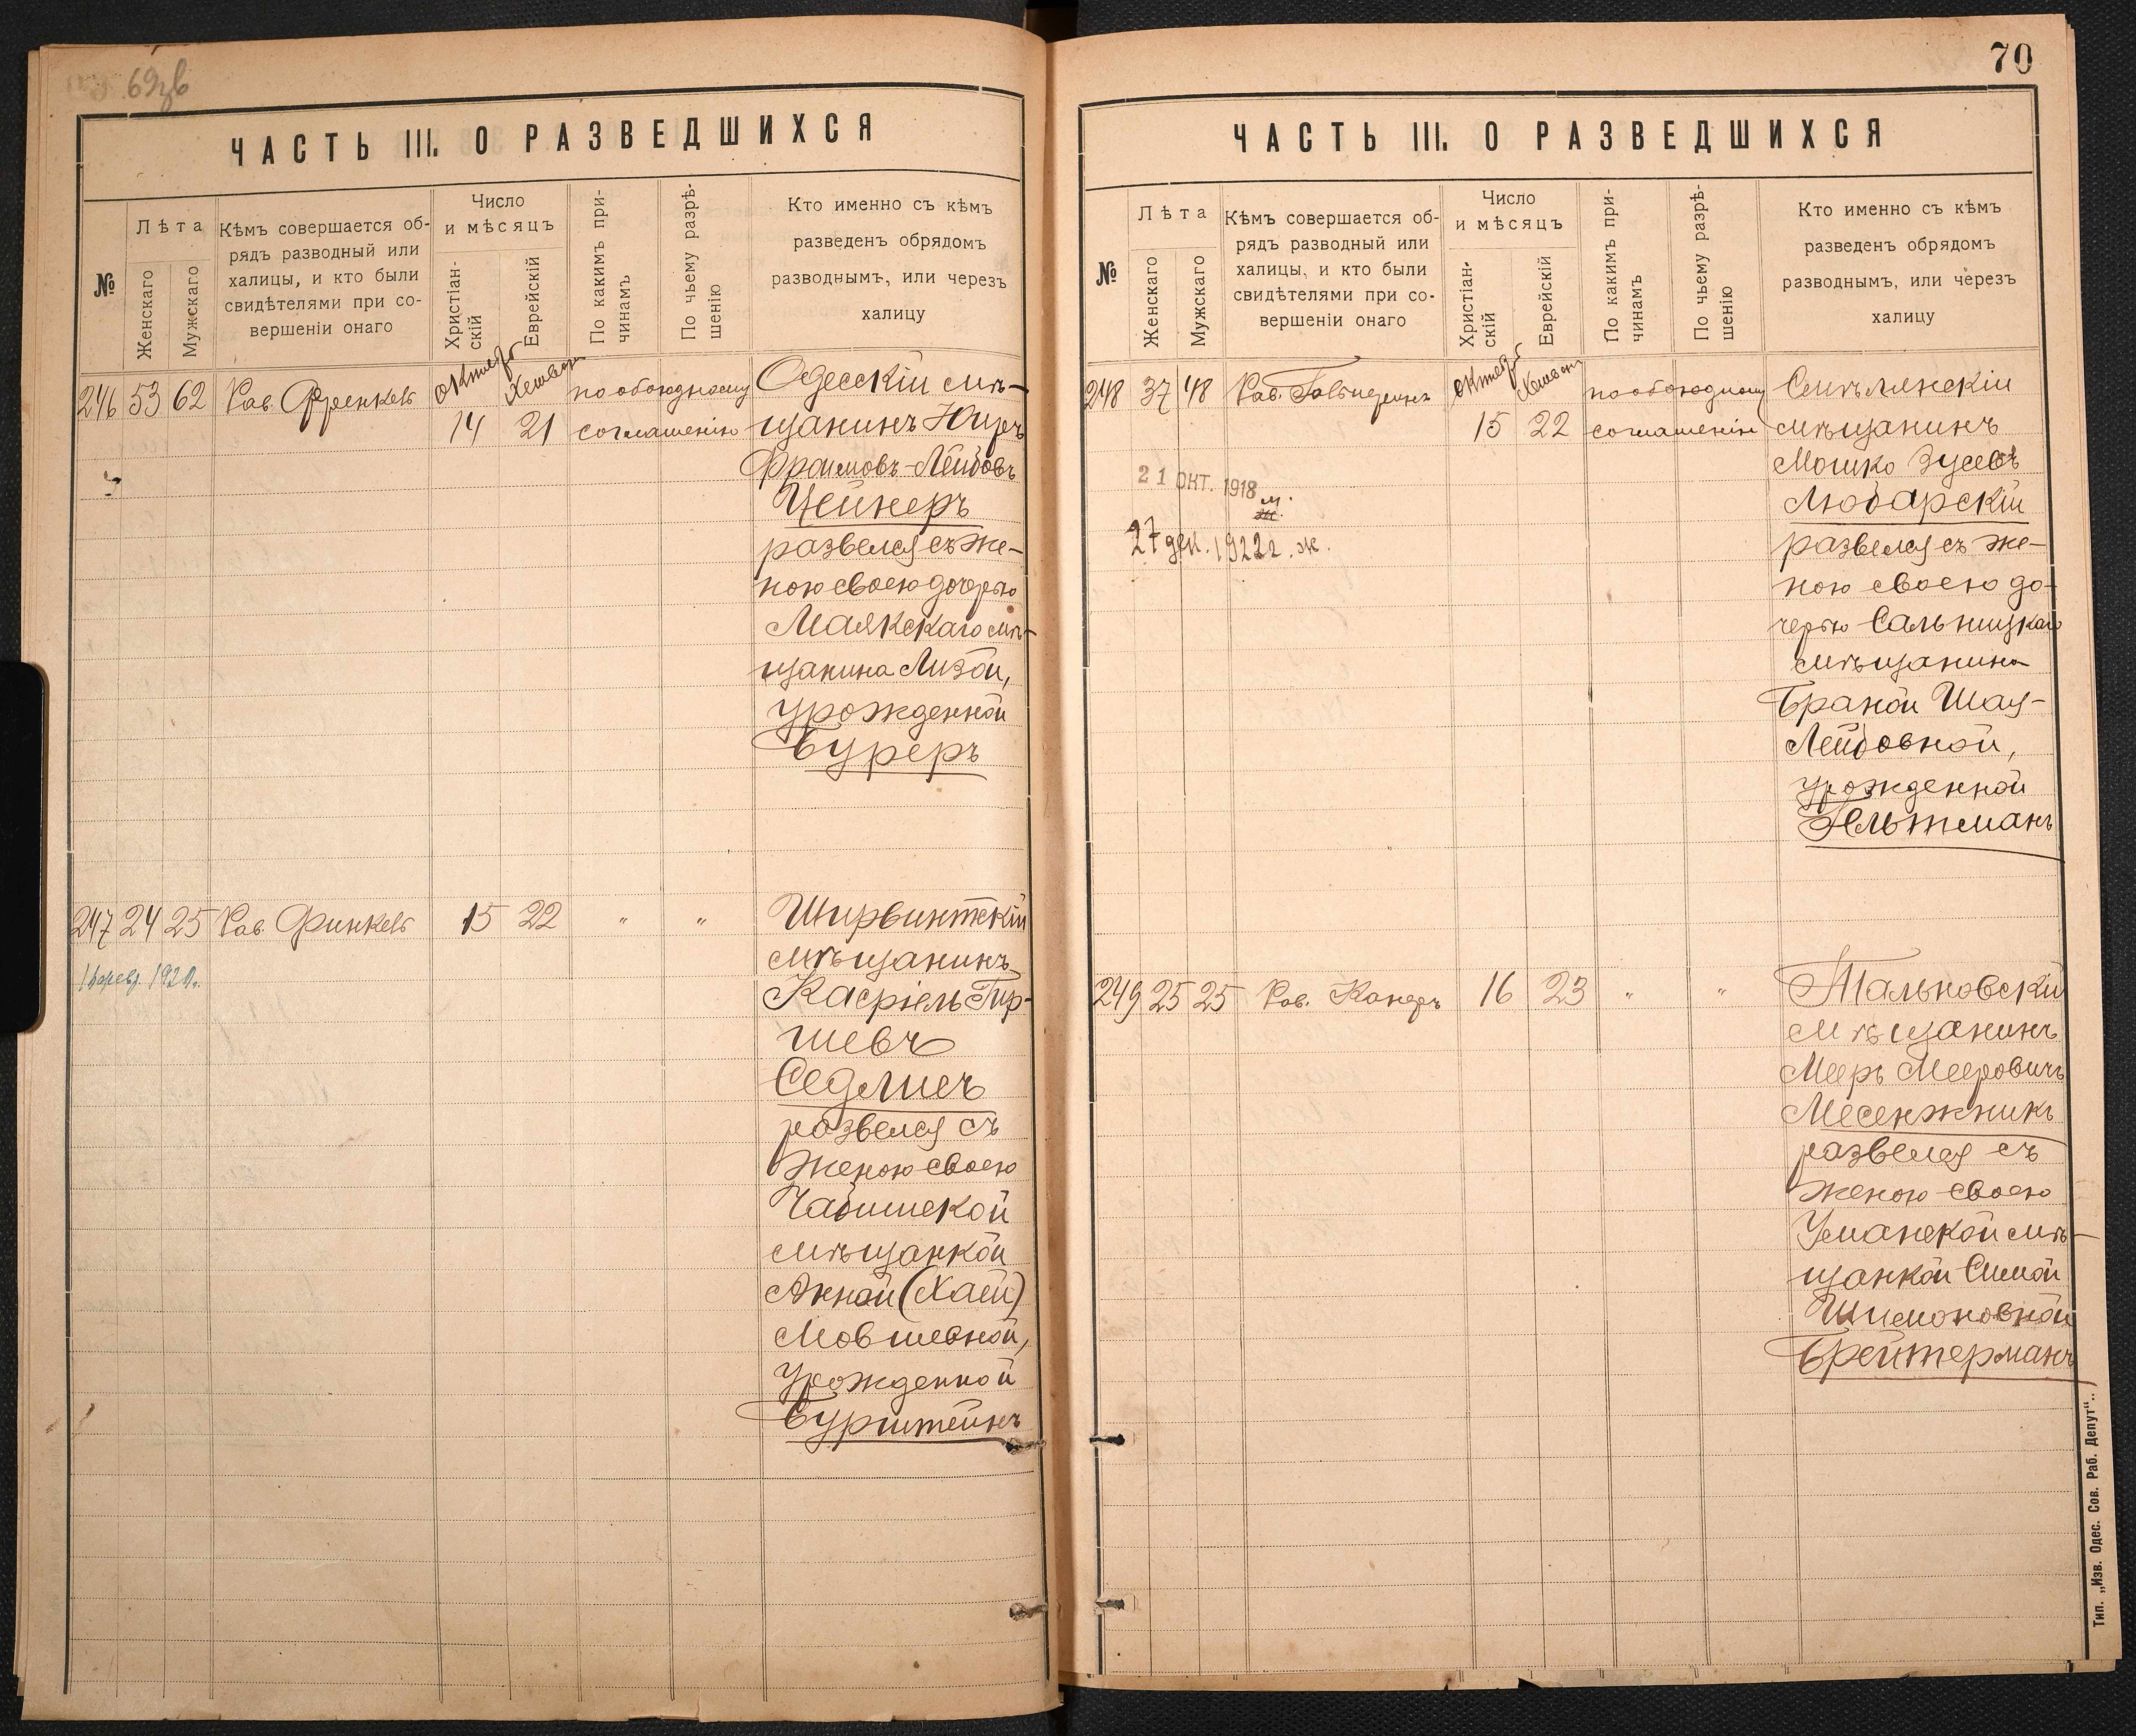 69зв
ЧАСТЬ III. О РАЗВЕДШИХСЯ
№
Лѣта
Женскаго
Мужскаго
Кѣмъ совершается об-
рядъ разводный или
халицы, и кто были
свидѣтелями при со-
вершеніи онаго
Число
и мѣсяцъ
Христіан-
скій
Еврейскій
По какимъ при-
чинамъ
По чьему разрѣ-
шенію
Кто именно съ кѣмъ
разведенъ обрядомъ
разводнымъ, или черезъ
халицу
246 53 62 Рав. Френкель
октябр
Хешван
14 21
по обоюдному
соглашенію
Одесскій мѣ-
щанинъ
Фроимовъ-Лейбовъ
Цейнеръ
развелся съ же-
ною своею дочерью
Маякскаго мѣ-
щанина Лизой,
урожденной
Буреръ
247 24 25 Рав. Финкель 15 22 " "
февр. 1920.
Ширвинтскій
мѣщанинъ
Касріель Гир-
шевъ
Седлисъ
развелся съ
женою своею
мѣщанкой
Анной (Хаей)
Мовшевной,
урожденной
Бурштейнъ
70
ЧАСТЬ III. О РАЗВЕДШИХСЯ
№
Лѣта
Женскаго
Мужскаго
Кѣмъ совершается об-
рядъ разводный или
халицы, и кто были
свидѣтелями при со-
вершеніи онаго
Число
и мѣсяцъ
Христіан-
скій
Еврейскій
По какимъ при-
чинамъ
По чьему разрѣ-
шенію
Кто именно съ кѣмъ
разведенъ обрядомъ
разводнымъ, или черезъ
халицу
248 37 48 Рав.
октябр
Хешван
15 22
по обоюдному
соглашенію
21 ОКТ. 1918
м.
27 дек. 1922г. ж.
мѣщанинъ
Мошко Зусевъ
Любарскій
развелся съ же-
ною своею до-
черью Сальницкаго
мѣщанина
Браной Шая-
Лейбовной,
урожденной
Гельтманъ
249 25 25 Рав. Канеръ 16 23 " "
Тальновскій
мѣщанинъ
Мееръ Мееровичъ
Месенжникъ
развелся съ
женою своею
Уманской мѣ-
щанкой Симой
Шимоновной
Брейтерманъ
Тип. „Изв. Одес. Сов. Раб. Депут".